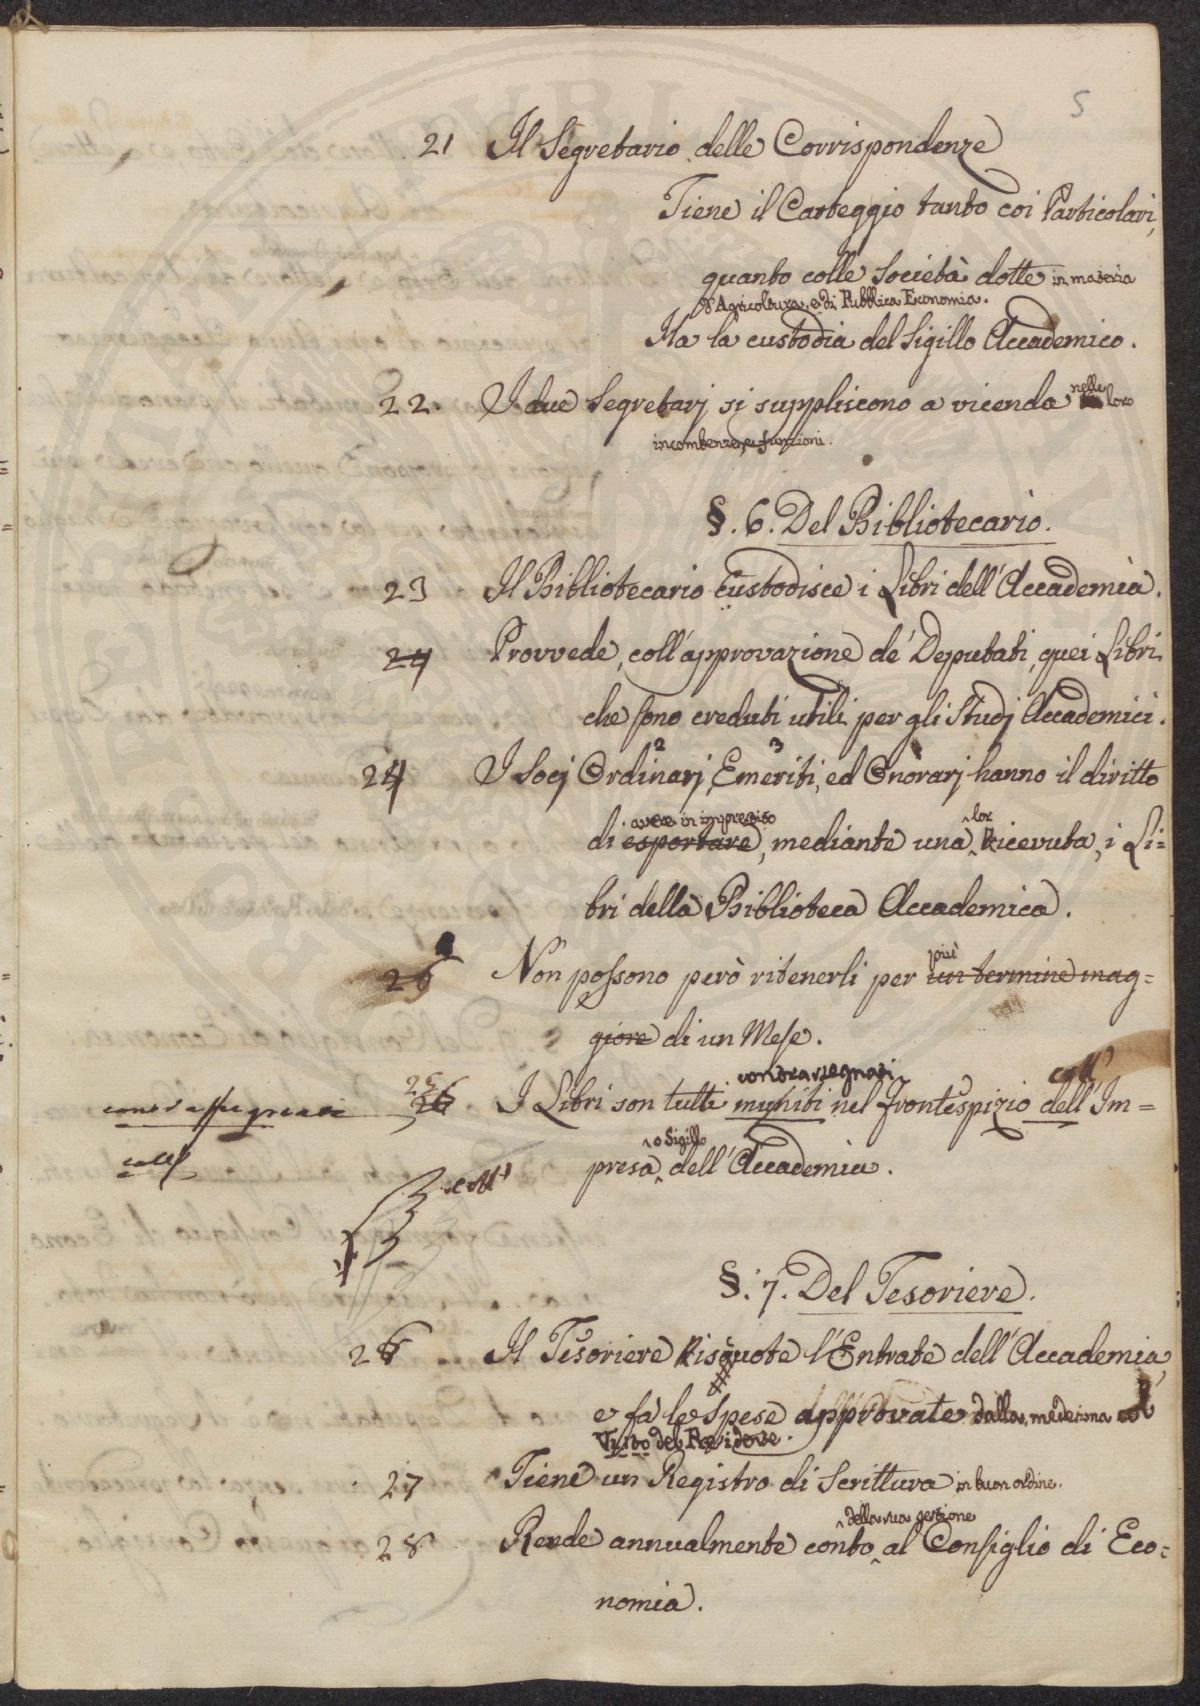 5
21 Il Segretario delle Corrispondenze
Tiene il Carteggio tanto coi Particolari,
quanto colle Società dotte in materia
d'Agricoltura, e di Pubblica Economia.
Ha la custodia del Sigillo Accademico.
22. I due Segretarj si suppliscono a vicenda nelle loro
incombenze, e funzioni.
§. 6. Del Bibliotecario.
23 Il Bibliotecario custodisce i Libri dell'Accademia.
24 Provvede, coll'approvazione de' Deputati, quei Libri
che sono creduti utili per gli Studj Accademici.
2 3
24 I Socj Ordinarj, Emeriti, ed Onorarj hanno il diritto
avere in imprestito lor
di esportare, mediante una Ricevuta, i Li=
bri della Biblioteca Accademica.
più
26 Non possono però ritenerli per un termine mag=
giore di un Mese.
contrassegnati coll'
contrassegnati 25 26 I Libri son tutti muniti nel frontespizio dell'Im=
o Sigillo
coll' presa dell'Accademia.
coll'
§. 7. Del Tesoriere.
26 Il Tesoriere Risquote l'Entrate dell'Accademia,
e fa le Spese approvate dalla medesima col
Visto del Presidente.
27 Tiene un Registro di Scrittura in buon ordine.
della sua gestione
28 Rende annualmente conto al Consiglio di Eco=
nomia.